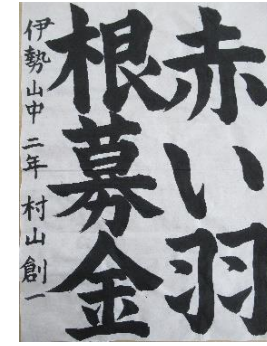 赤い羽
根募金
伊勢山中 二年 村山創一